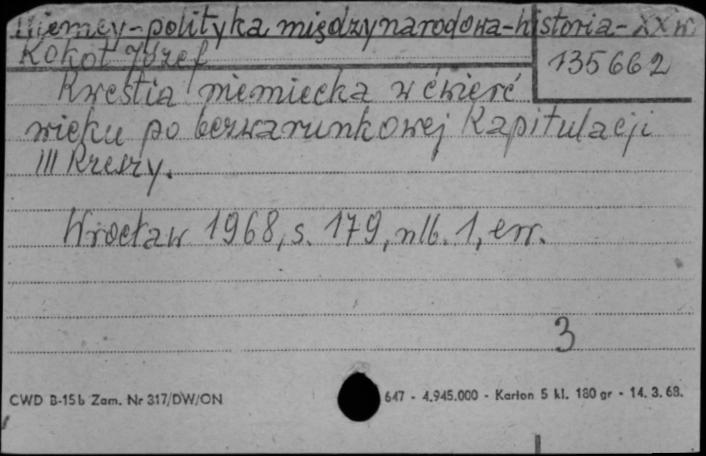 Niemcy-polityka międzynarodowa-historia-XX w.
Kokot Józef
135662
Kwestia niemiecka w ćwierć
wieku po bezwarunkowej Kapitulacji
III Rzeszy.
Wrocław 1968, s. 179, nlb. 1, err.
3
CWD B-15b Zam. Nr 317/DW/ON
647 - 4.945.000 - Karton 5 kl. 180 gr - 14. 3. 68.